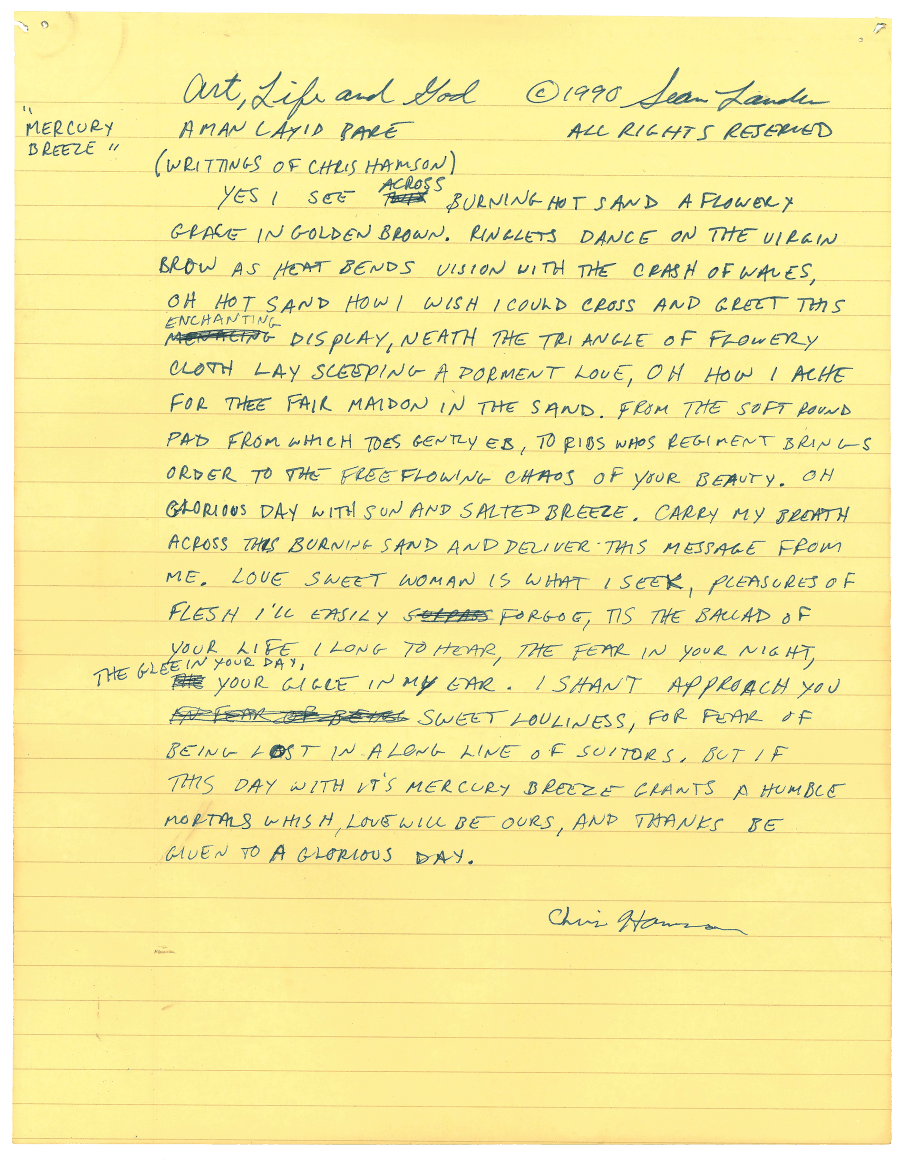 Art, Life and God ©1990 Sean Landers
"MERCURY
BREEZE"
A MAN LAYID BARE ALL RIGHTS RESERVED
(WRITTINGS OF CHRIS HAMSON)
YES I SEE ACROSS BURNING HOT SAND A FLOWERY
GRACE IN GOLDEN BROWN. RINGLETS DANCE ON THE VIRGIN
BROW AS HEAT BENDS VISION WITH THE CRASH OF WAVES,
OH HOT SAND HOW I WISH I COULD CROSS AND GREET THIS
ENCHANTING
MENACING DISPLAY, NEATH THE TRIANGLE OF FLOWERY
CLOTH LAY SLEEPING A DORMENT LOVE, OH HOW I ACHE
FOR THEE FAIR MAIDON IN THE SAND. FROM THE SOFT ROUND
PAD FROM WHICH TOES GENTLY EB, TO RIBS WHOS REGIMENT BRINGS
ORDER TO THE FREE FLOWING CHAOS OF YOUR BEAUTY. OH
GLORIOUS DAY WITH SUN AND SALTED BREEZE. CARRY MY BREATH
ACROSS THIS BURNING SAND AND DELIVER THIS MESSAGE FROM
ME. LOVE SWEET WOMAN IS WHAT I SEEK, PLEASURES OF
FLESH I'LL EASILY FORGOE, TIS THE BALLAD OF
YOUR LIFE I LONG TO HEAR, THE FEAR IN YOUR NIGHT,
THE GLEE IN YOUR DAY,
THE YOUR GIGLE IN MY EAR. I SHAN'T APPROACH YOU
IN FEAR OF BEING SWEET LOULINESS, FOR FEAR OF
BEING LOST IN A LONG LINE OF SUITORS. BUT IF
THIS DAY WITH IT'S MERCURY BREEZE GRANTS A HUMBLE
MORTALS WHISH, LOVE WILL BE OURS, AND THANKS BE
GIVEN TO A GLORIOUS DAY.
Chris Hamson